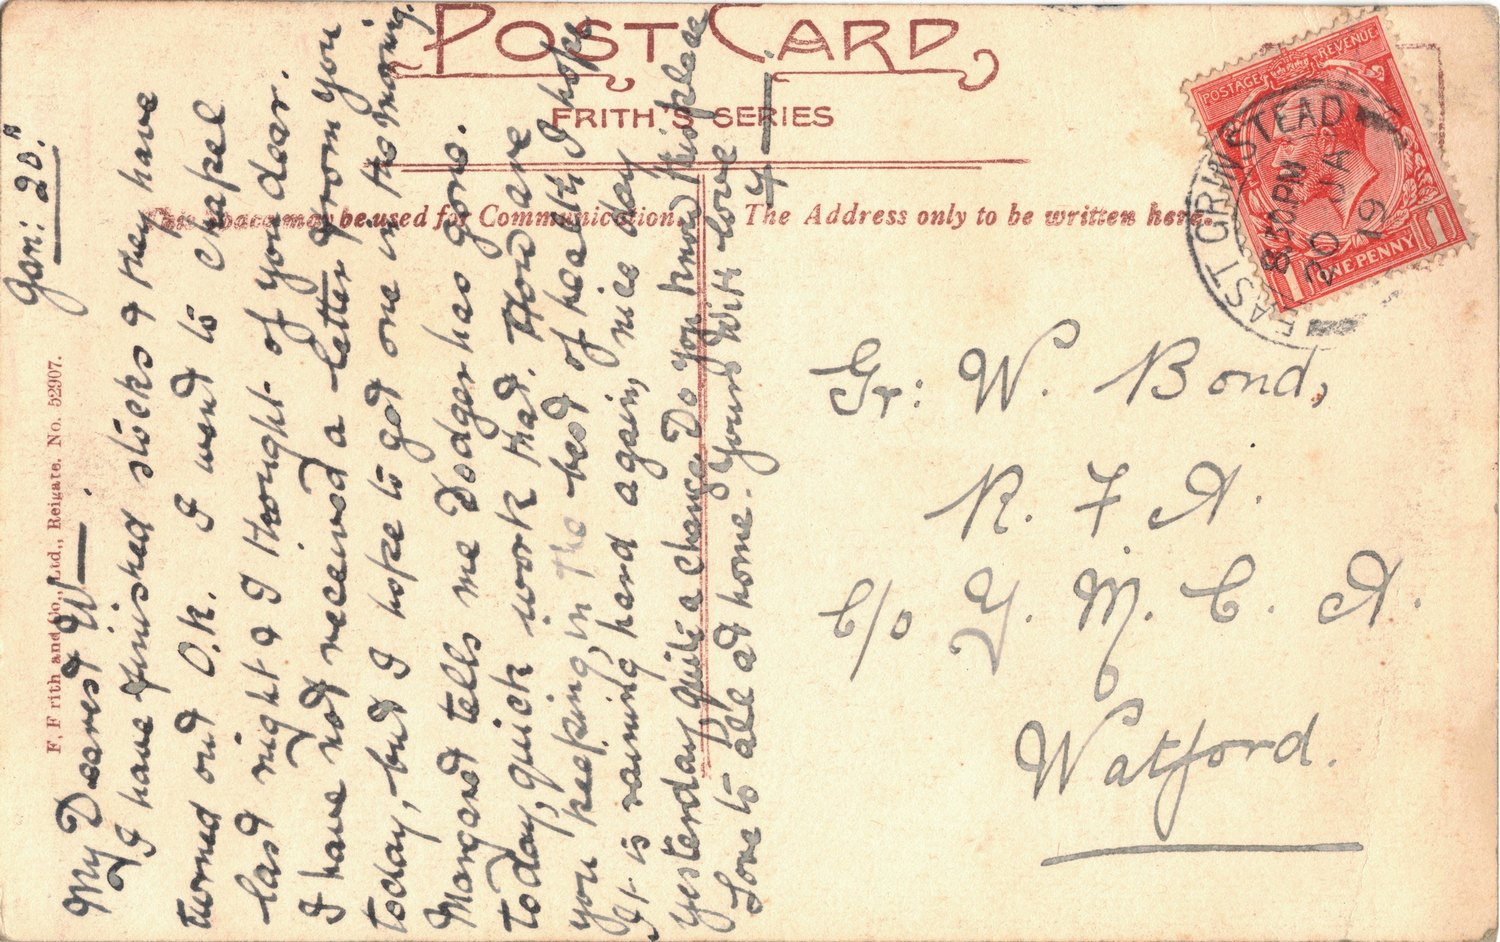 POST CARD
FRITH'S SERIES
This space may be used for Communication.
The Address only to be written here.
F. Frith and Co., Ltd., Reigate. No. 52907.
POSTAGE REVENUE
1 ONE PENNY 1
EAST GRINSTEAD
8 30 PM
20 JA
19
Jan: 20.
My Dearest W—.
I have finished sticks & they have
turned out O.K. I went to chapel
last night & I thought of you dear.
I have not received a letter from you
today, but I hope to get one in the morning.
Margaret tells me Dodger has gone.
today, quick work that. How are
you keeping, in the best of health I hope
It is raining hard again, nice day
yesterday, quite a change. Do you know this place
Love to all at home. Yours with love
Gr: W. Bond,
R. F. A.
C/o Y. M. C. A.
Watford.